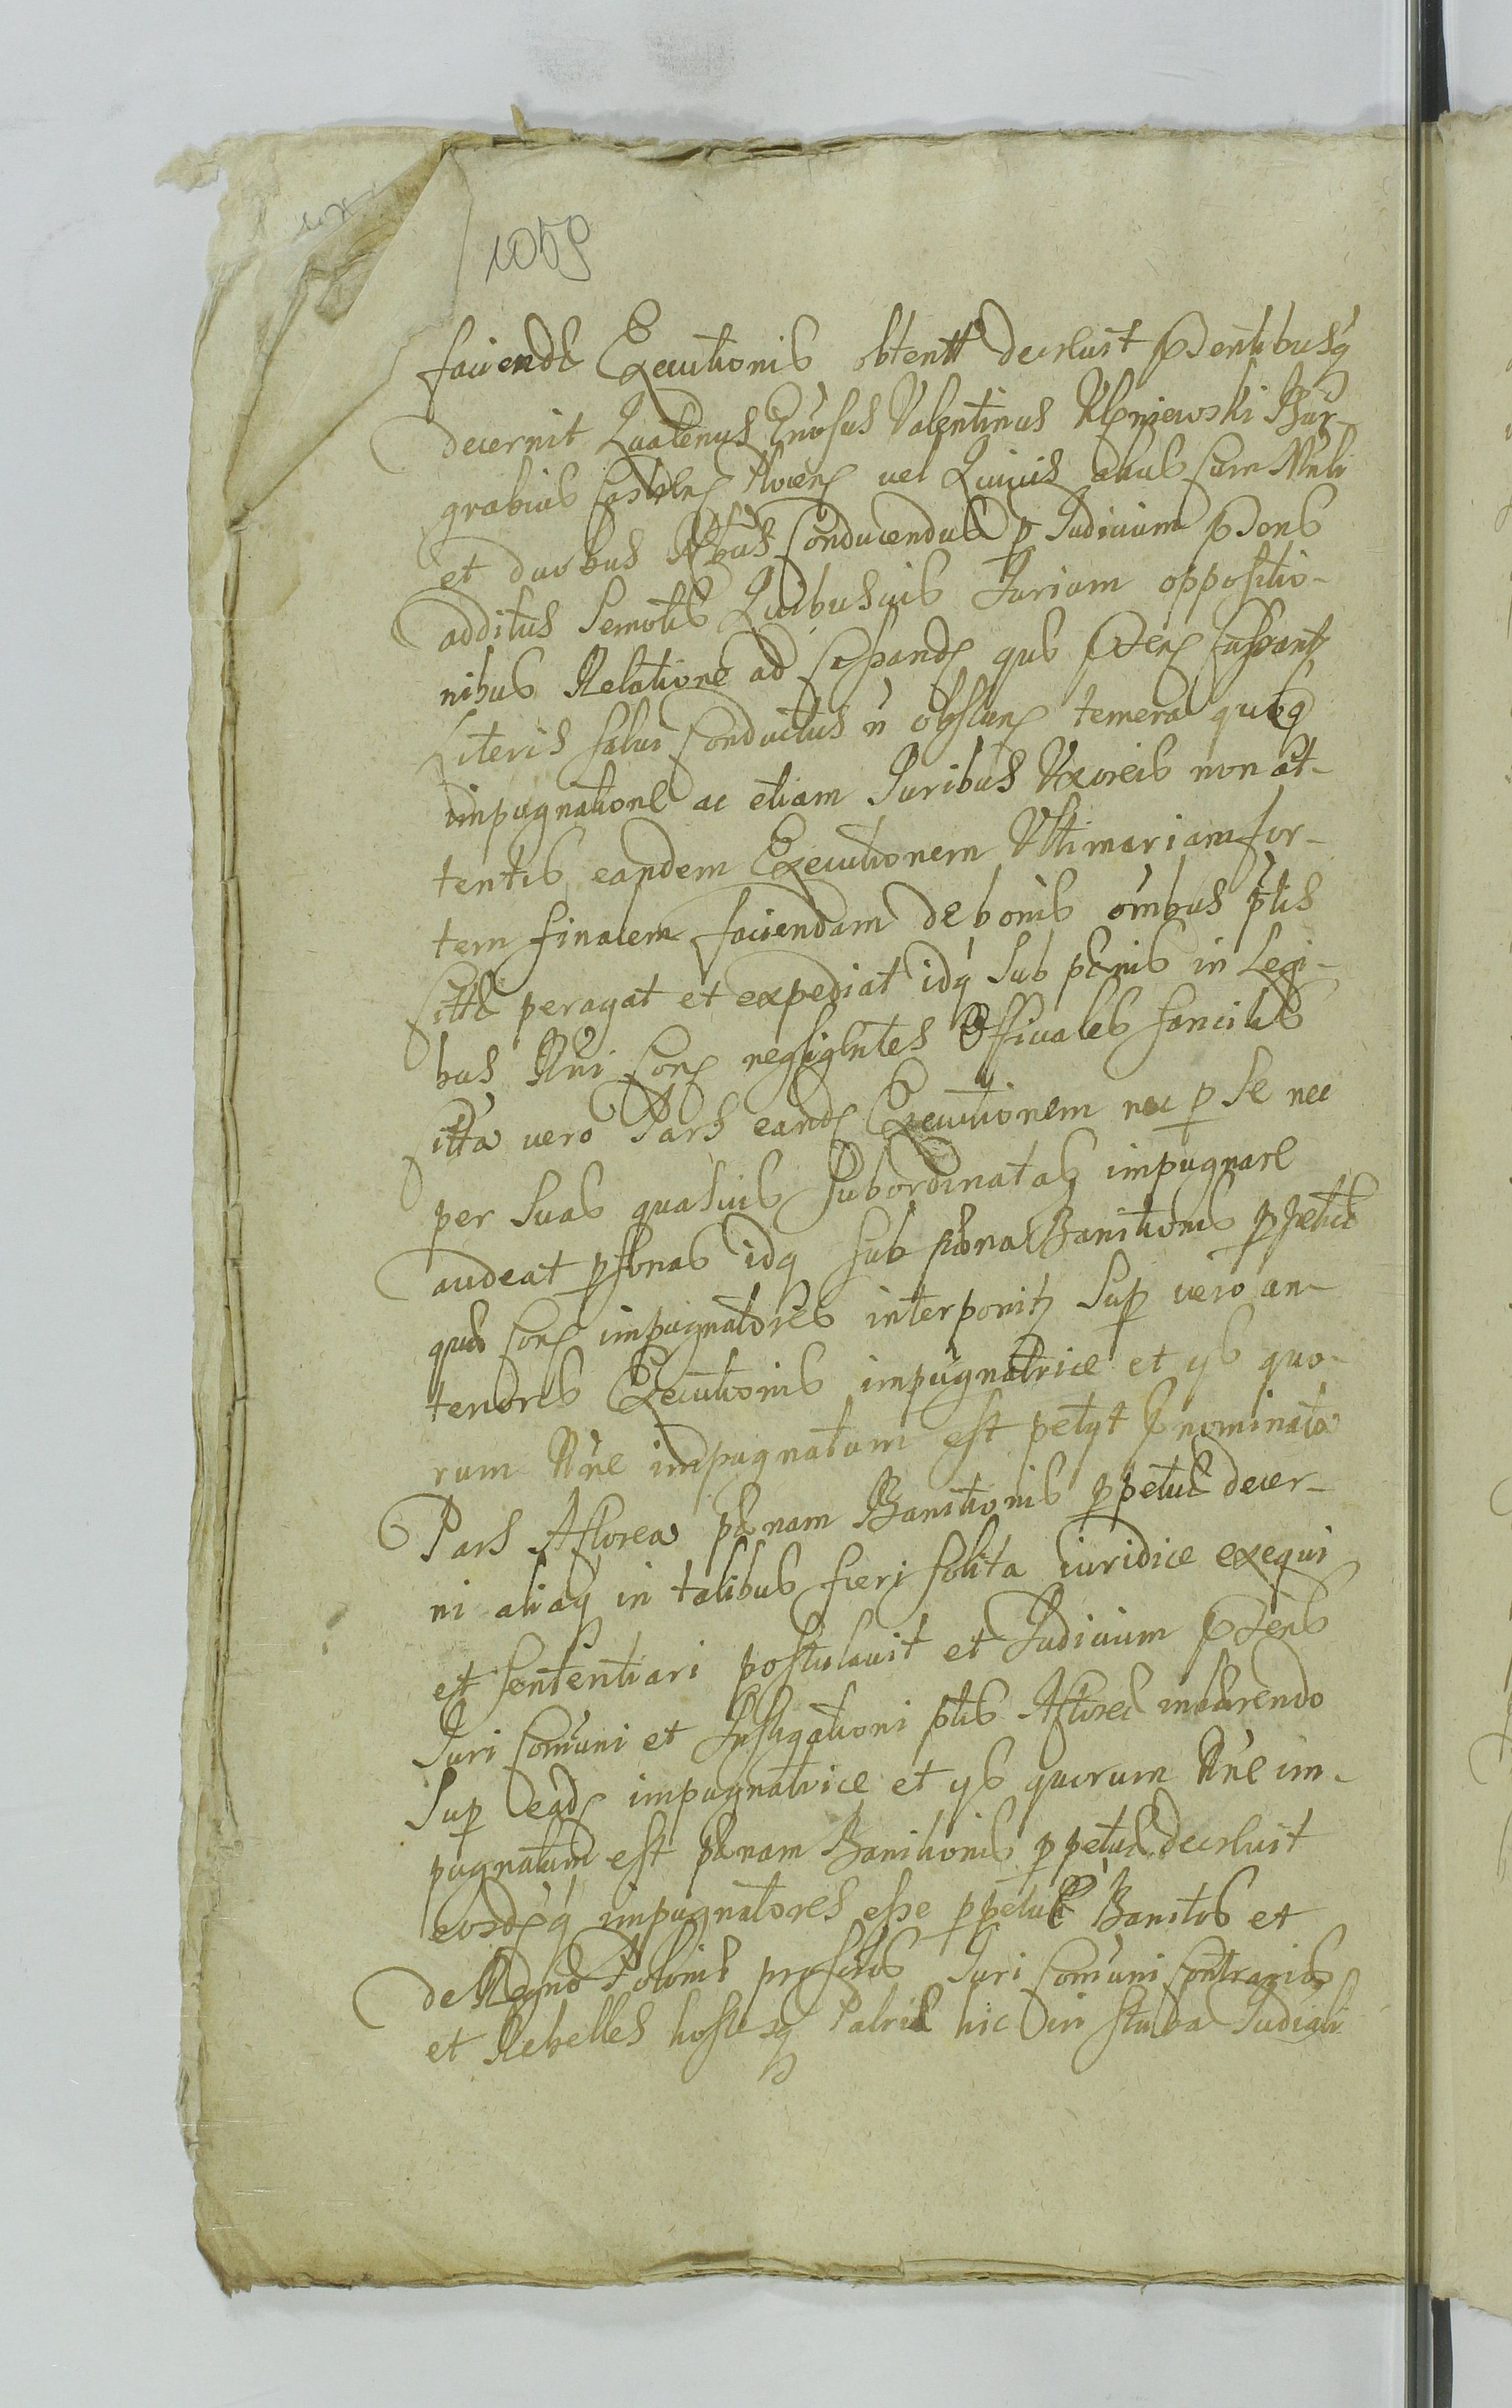 1059
faciendę Executionis obtentę decreuit pntibusq
decernit Quatenus Gnosus Valentinus Bur-
grabius Castren vel Quiuis alius cum Mnli
et duobus Nobilibus Conducendus p Judicium pns
additus semotis Quibusuis Juriam oppositio-
nibus Relatione ad
Literis salui Conductus n obstan temera quoq
impugnatione ac etiam Juribus Uxoreis non at-
tentis eandem Executionem Ultimariam for-
tem finalem faciendam de bonis omibus ptis
Cittę peragat et expediat idq sub penis in Legi-
bus Rni Con negligentes Officiales sancitis
Citta vero Pars eand Executionem nec p se nec
per suas quasuis subordinatas impugnare
audeat psonas idq sub pęna Banitionis ppetuę
quas Con impugnatores interponit Sup vero an-
teriores Executionis impugnatrice et ys quo-
rum Nne impugnatum est petyt pnominata
Pars Actorea pęnam Banitionis ppetuę decer-
ni aliaq in talibus fieri solita iuridice exequi
et sententiari postulauit et Judicium pns
Juri Comuni et Instigationi ptis Actoreę inhęrendo
Sup ead impugnatrice et ys quorum Nne im-
pugnatum est pęnam Banitionis ppetuę decreuit
eosdq impugnatores esse ppetuę Banitos et
de Regno Polonię proscitos Juri Comuni Contrarios
et Rebelles hostesq Patrię hic in stuba Judiciali